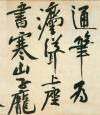 通筆為
灋聳上座
書寒山子龐